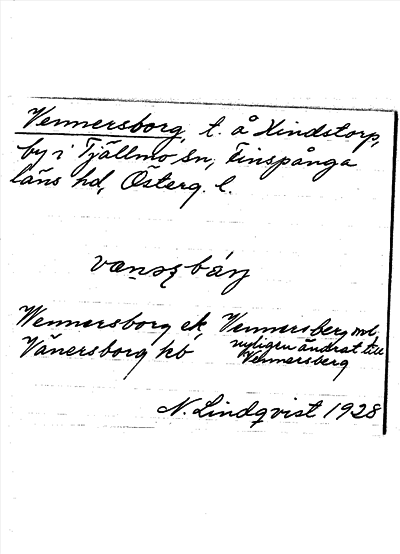 Vennersborg, t. å Hindstorp,
by i Tjällmo sn, Finspånga
läns hd, Österg. l.
Wennersborg ek, Vennersberg ml,
nyligen ändrat till
Vänersborg kb Vennersberg
N. Lindqvist 1928